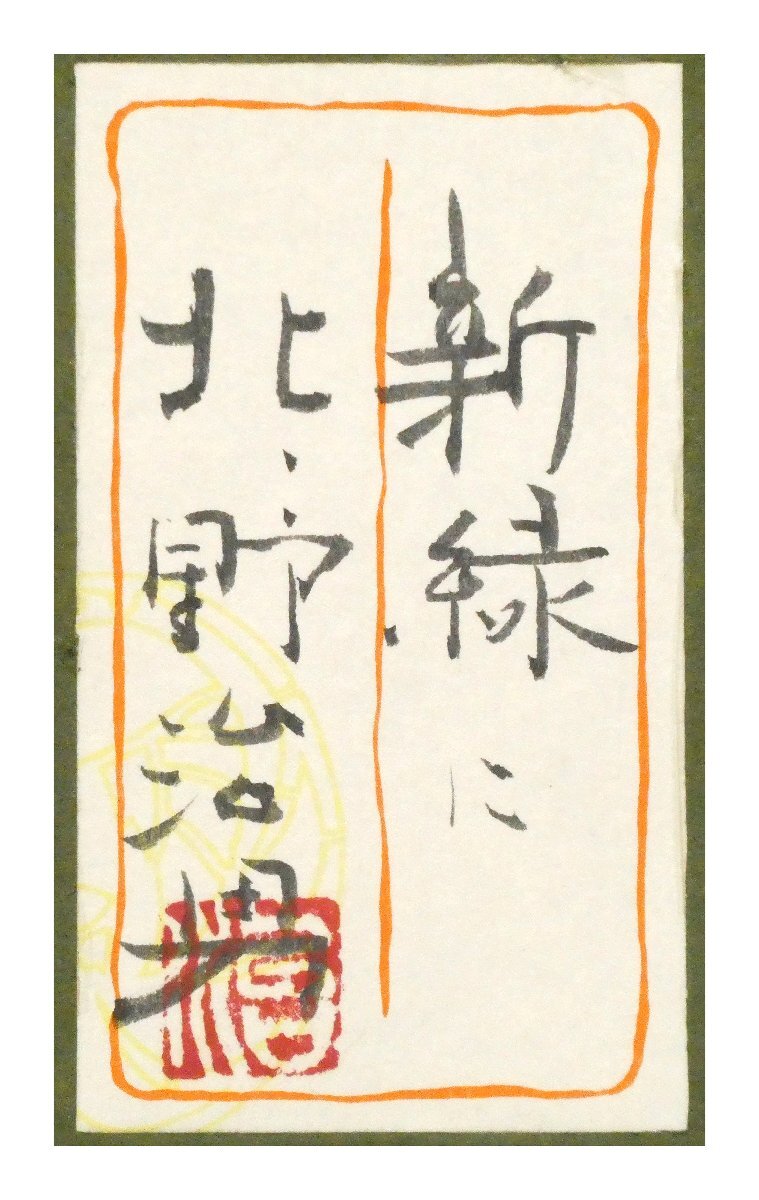 新緑に
北野治男
治